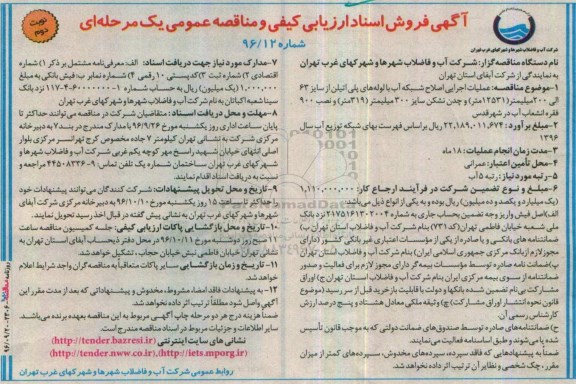 آگهی فروش اسناد ارزیابی کیفی و مناقصه عمومی یک مرحله‌ای
شماره ۹۶/۱۲
نوبت دوم
شرکت آب و فاضلاب شهرها و شهرکهای غرب تهران
نام دستگاه مناقصه گزار: شرکت آب و فاضلاب شهرها و شهرکهای غرب تهران
به نمایندگی از شرکت آبفای استان تهران
۱-موضوع مناقصه: عملیات اجرایی اصلاح شبکه آب با لوله‌های پلی اتیلن از سایز ۶۳
الی ۲۰۰ میلیمتر (۱۲۵۳۱ متر) و چدن نشکن سایز ۳۰۰ میلیمتر (۳۱۹ متر) و نصب ۹۰۰
فقره انشعاب آب در شهرقدس
۲-مبلغ برآورد: ۲۲,۱۸۹,۰۱۱,۶۷۴ ریال براساس فهرست بهای شبکه توزیع آب سال
۱۳۹۶
۳-مدت زمان انجام عملیات: ۱۸ ماه
۴-محل تأمین اعتبار: عمرانی
۵-رتبه مورد نیاز: رتبه ۵ آب
۶-مبلغ و نوع تضمین شرکت در فرآیند ارجاع کار: ۱,۱۱۰,۰۰۰,۰۰۰
(یک میلیارد و یکصد و ده میلیون) ریال بوده و به یکی از انواع ذیل می‌باشد:
الف) اصل فیش واریز وجه تضمین بحساب جاری به شماره ۲۱۷۵۱۶۱۳۰۲۰۰۴ نزد بانک
ملی شعبه خیابان فاطمی تهران (کد ۷۳۱) بنام شرکت آب و فاضلاب استان تهران ب)
ضمانتنامه های بانکی و یا صادره از یکی از مؤسسات اعتباری غیر بانکی کشور (دارای
مجوز لازم از بانک مرکزی جمهوری اسلامی ایران) بنام شرکت آب و فاضلاب استان تهران
پ) ضمانت نامه صادره توسط مؤسسات بیمه گر دارای مجوز لازم برای فعالیت و صدور
ضمانتنامه از سوی بیمه مرکزی ایران بنام شرکت آب و فاضلاب استان تهران ج) اوراق
مشارکت بی‌نام تضمین شده بانکها و دولت با قابلیت بازخرید قبل از سررسید (موضوع
قانون نحوه انتشار اوراق مشارکت) چ) وثیقه ملکی معادل هشتاد و پنج درصد ارزش
کارشناس رسمی آن.
ح) ضمانتنامه های صادره توسط صندوق‌های ضمانت دولتی که به موجب قانون تأسیس
شده یا می‌شوند و طبق اساسنامه فعالیت می‌نمایند.
ضمناً به پیشنهادهایی که فاقد سپرده، سپرده‌های مخدوش، سپرده‌های کمتر از میزان
مقرر، چک شخصی و نظایر آن ترتیب اثر داده نخواهد شد.
۷-مدارک مورد نیاز جهت دریافت اسناد: الف: معرفی نامه مشتمل بر ذکر ۱) شماره
اقتصادی ۲) شماره ثبت ۳) کدپستی ۱۰ رقمی ۴) شماره نمابر ب: فیش بانکی به مبلغ
۱,۰۰۰,۰۰۰ (یک میلیون) ریال به حساب شماره ۱-۶۰۰۰۰۰۰-۴-۱۱۷ نزد بانک
سینا شعبه اکباتان به نام شرکت آب و فاضلاب شهرها و شهرکهای غرب تهران
۸-مهلت و محل دریافت اسناد: متقاضیان شرکت در مناقصه می‌توانند حداکثر تا
پایان ساعت اداری روز یکشنبه مورخ ۹۶/۹/۲۶ با مدارک مندرج در بند ۷ به دبیرخانه
مرکزی شرکت به نشانی تهران کیلومتر ۷ جاده مخصوص کرج تهرانسر مرکزی بلوار
اصلی انتهای خیابان شهید راسخ مهر کوچه یکم غربی شرکت آب و فاضلاب شهرها و
شهرکهای غرب تهران ساختمان شماره یک تلفن تماس ۹-۴۴۵۰۸۳۳۶ مراجعه و
نسبت به دریافت اسناد اقدام نمایند.
۹-تاریخ و محل تحویل پیشنهادات: شرکت کنندگان می‌توانند پیشنهادات خود
را حداکثر تا ساعت ۱۵ روز یکشنبه مورخ ۹۶/۱۰/۱۰ به دبیرخانه مرکزی شرکت آبفای
شهرها و شهرکهای غرب تهران به نشانی پیش گفته در قبال اخذ رسید تحویل نمایند.
۱۰-تاریخ و محل بازگشایی پاکات ارزیابی کیفی: جلسه کمیسیون مناقصه ساعت
۱۱ صبح روز دوشنبه مورخ ۹۶/۱۰/۱۱ در محل دفتر ذیحساب آبفای استان تهران به
نشانی تهران خیابان فاطمی نبش خیابان حجاب ، تشکیل خواهد شد.
۱۱-تاریخ و زمان بازگشایی سایر پاکات متعاقباً به مناقصه گران واجد شرایط اعلام
خواهد شد.
۱۲-به پیشنهادات فاقد امضا، مشروط، مخدوش و پیشنهاداتی که بعد از مدت مقرر این
آگهی واصل شود مطلقاً ترتیب اثر داده نخواهد شد.
ضمناً هزینه درج هر دو مرحله چاپ آگهی مربوط به این مناقصه بعهده برنده می‌باشد.
سایر اطلاعات و جزئیات مربوط در اسناد مناقصه مندرج است.
نشانی های سایت اینترنتی (http://tender.bazresi.ir)
(http://tender.nww.co.ir),(http://iets.mporg.ir)
روابط عمومی شرکت آب و فاضلاب شهرها و شهرکهای غرب تهران